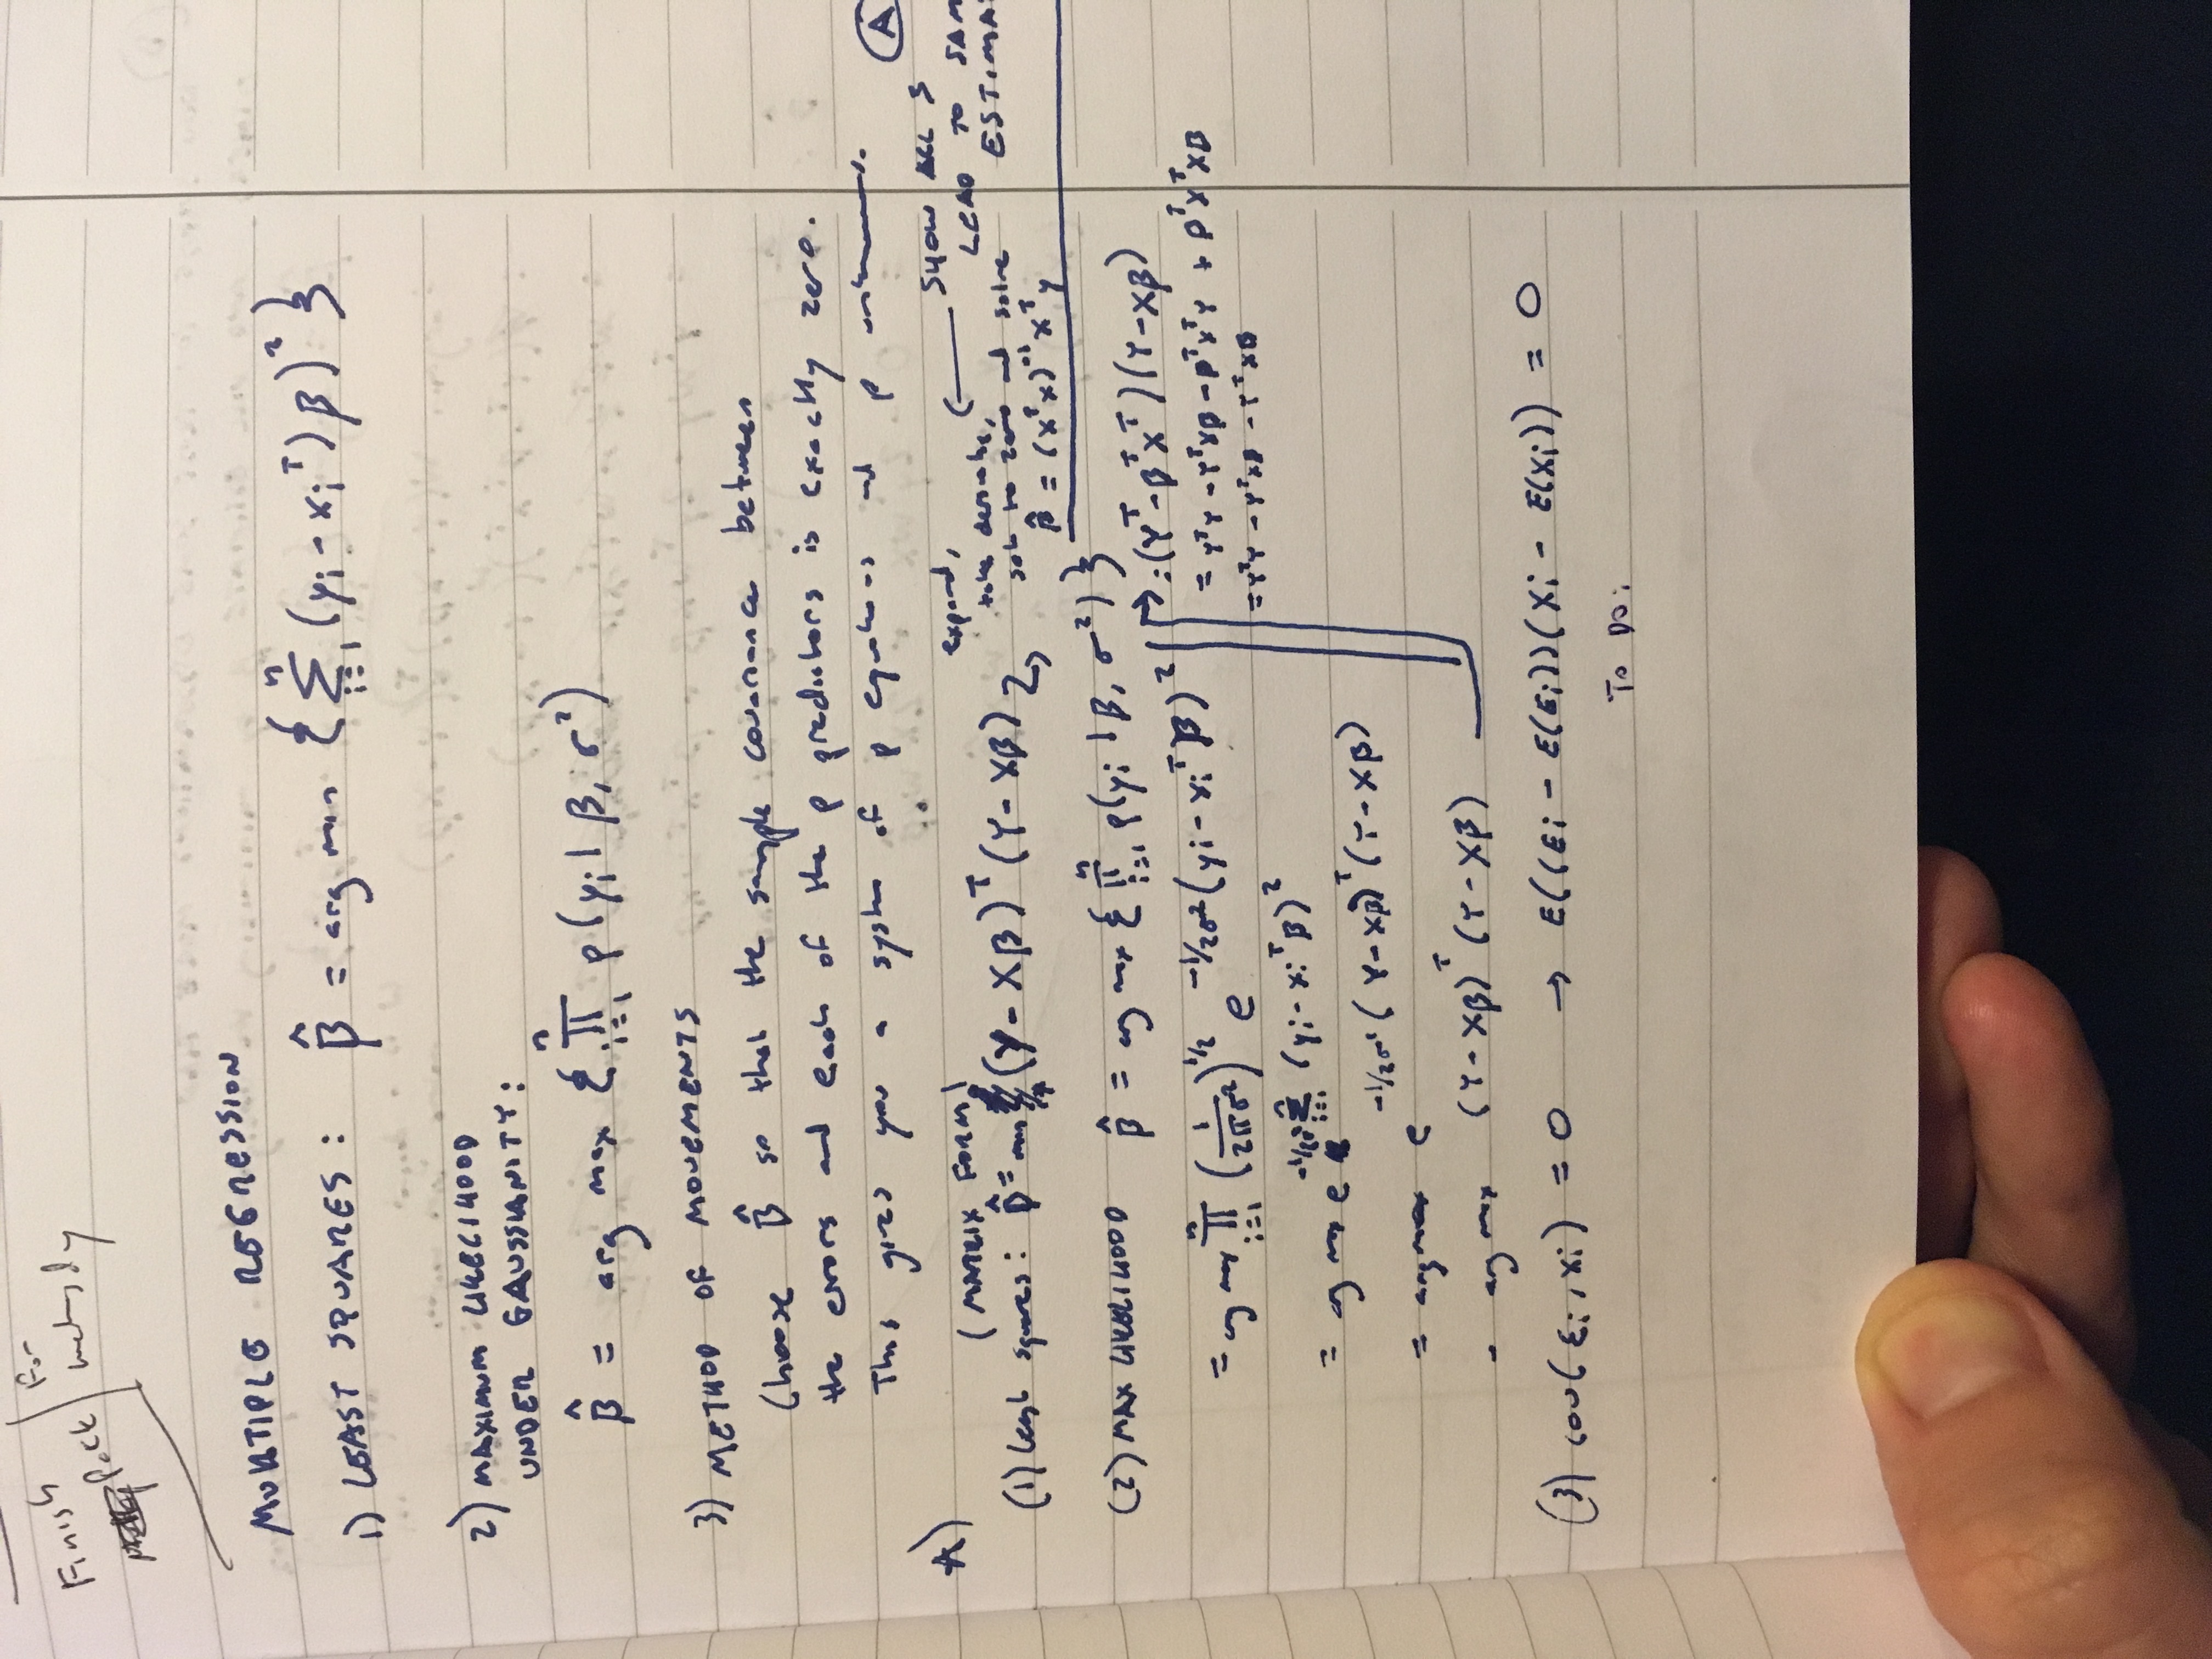 Finish
Pack
For
MULTIPLE REGRESSION
1) LEAST SQUARES: β̂ = arg min {Σ_{i=1}^{n} (yi - xi^T) β)^2 }
2) MAXIMUM LIKELIHOOD
UNDER GAUSSIANITY:
β̂ = arg max { Π_{i=1}^{n} p(yi | β, σ^2)
3) METHOD OF MOVEMENTS
Choose β̂ so that the sample covariance between
the errors and each of the p predictors is exactly zero.
This gives you a system of p equations and p unknowns.
A)
(MATRIX FORM)
(1) Least squares: β̂ = min (Y - Xβ)^T (Y - Xβ)
expand,
take derivative,
set to zero and solve
β̂ = (X^T X)^-1 X^T y
A
← SHOW ALL 3
LEAD TO SAM
ESTIMA
(2) MAX LIKELIHOOD β̂ = arg max { Π_{i=1}^{n} p(yi | β, σ^2) }
= arg max Π_{i=1}^{n} (1/2πσ^2)^1/2 e^{-1/2σ^2 (yi - xi^T β)^2}
= arg max e^{-1/2σ^2 Σ_{i=1}^{n} (yi - xi^T β)^2}
= arg max e^{-1/2σ^2 (Y - Xβ)^T (Y - Xβ)}
= arg max (Y - Xβ)^T (Y - Xβ)
→ : (Y^T - β^T X^T)(Y - Xβ)
= Y^T Y - Y^T Xβ - β^T X^T Y + β^T X^T Xβ
= Y^T Y - Y^T Xβ - Y^T Xβ
(3) cov(εi, xi) = 0 → E((εi - E(εi))(Xi - E(xi)) = 0
TO DO: